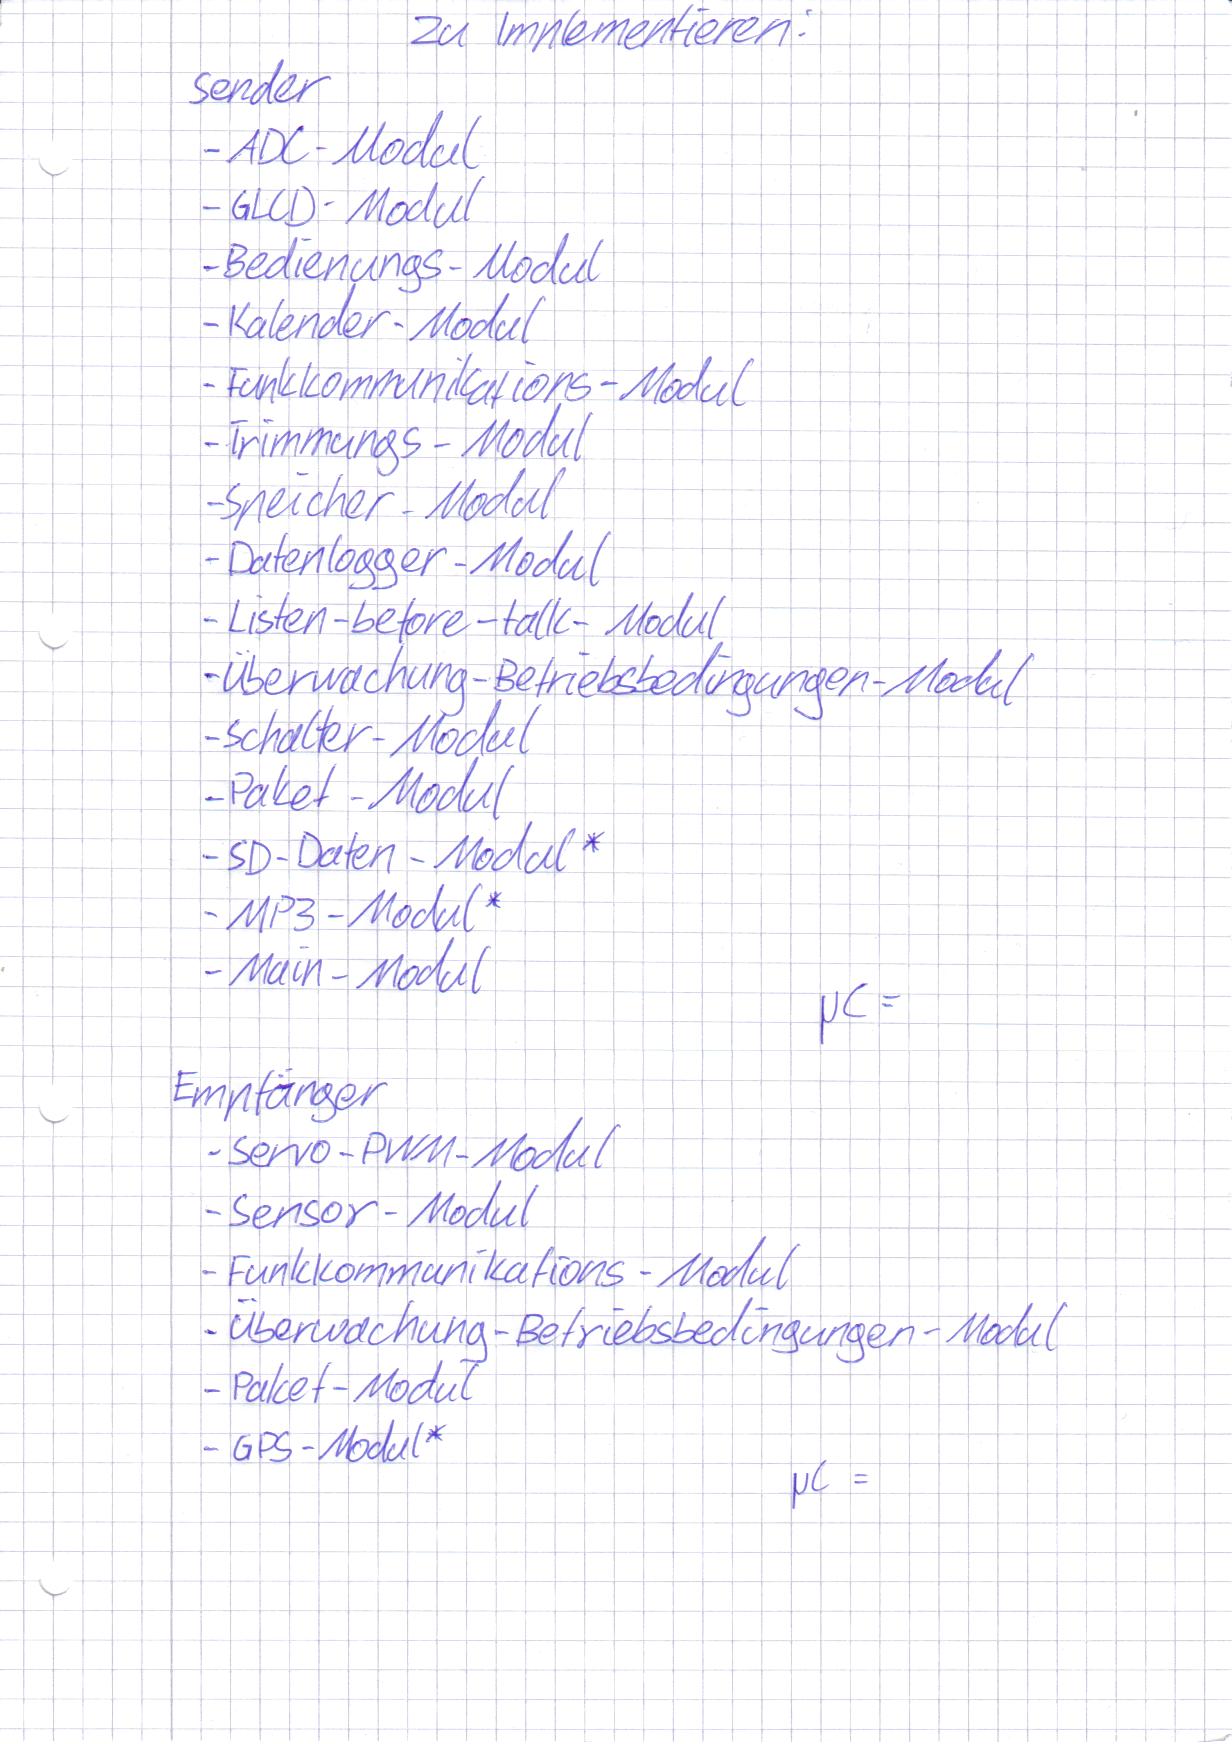 Zu Implementieren:
Sender
- ADC - Modul
- GLCD - Modul
- Bedienungs - Modul
- Kalender - Modul
- Funkkommunikations - Modul
- Trimmungs - Modul
- Speicher - Modul
- Datenlogger - Modul
- Listen-before-talk - Modul
- Überwachung-Betriebsbedingungen - Modul
- Schalter - Modul
- Paket - Modul
- SD-Daten - Modul*
- MP3 - Modul*
- Main - Modul
µC =
Empfänger
- Servo-PWM - Modul
- Sensor - Modul
- Funkkommunikations - Modul
- Überwachung-Betriebsbedingungen - Modul
- Paket - Modul
- GPS - Modul*
µC =